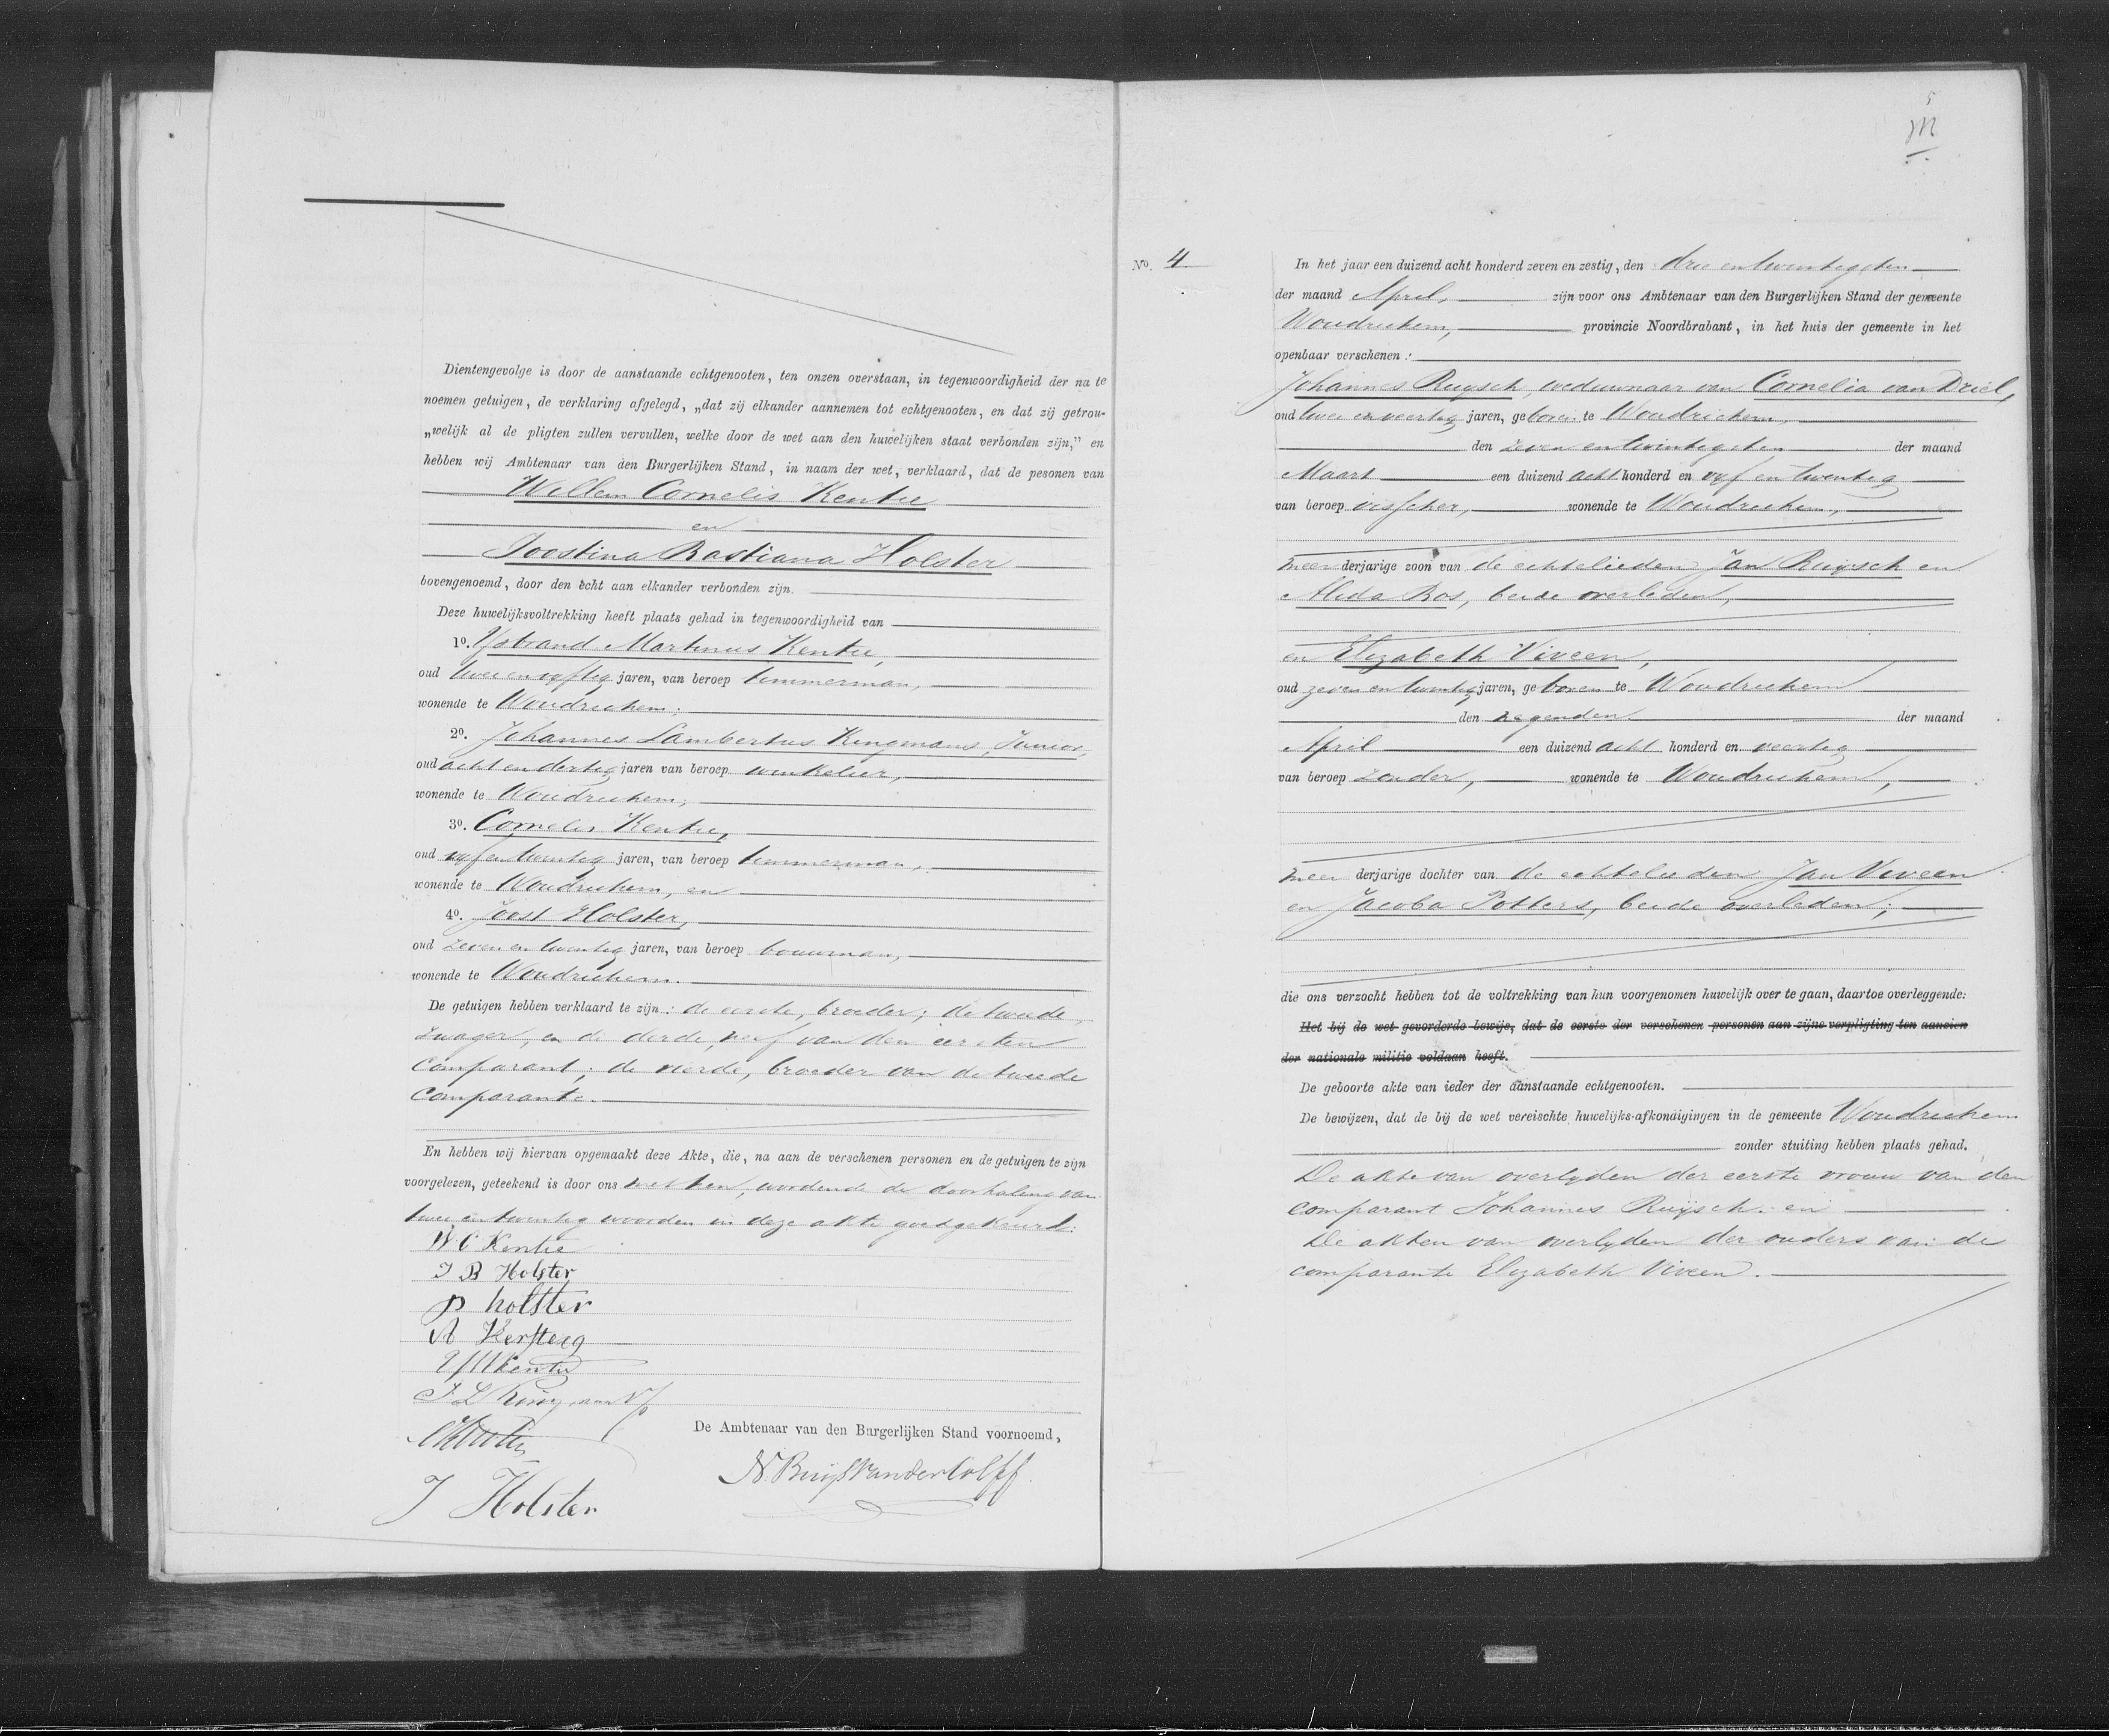 Dientengevolge is door de aanstaande echtgenooten, ten onzen overstaan, in tegenwoordigheid der na te
noemen getuigen, de verklaring afgelegd, „dat zij elkander aannemen tot echtgenooten, en dat zij getrou-
„welijk al de pligten zullen vervullen, welke door de wet aan den huwelijken staat verbonden zijn,” en
hebben wij Ambtenaar van den Burgerlijken Stand, in naam der wet, verklaard, dat de pesonen van
Willem Cornelis Kentie
en
Joostina Bastiana Holster
bovengenoemd, door den echt aan elkander verbonden zijn.
Deze huwelijksvoltrekking heeft plaats gehad in tegenwoordigheid van
1º. IJsbrand Martinus Kentie,
oud twee en vyftig jaren, van beroep timmerman,
wonende te Woudrichem;
2º. Johannes Lambertus Kingmans Junior,
oud acht en dertig jaren van beroep winkelier,
wonende te Woudrichem;
3º. Cornelis Kentie,
oud vyf en twintig jaren, van beroep timmerman,
wonende te Woudrichem, en
4º. Joost Holster,
oud zeven en twintig jaren, van beroep bouwman,
wonende te Woudrichem.
De getuigen hebben verklaard te zijn: de eerste, broeder; de tweede
zwager, en de derde, neef van den eersten
comparant; de vierde, broeder van de tweede
comparante.
En hebben wij hiervan opgemaakt deze Akte, die, na aan de verschenen personen en de getuigen te zijn
voorgelezen, geteekend is door ons met hen, wordende de doorhaling van
twee en twintig woorden in deze akte goedgekeurd.
W C Kentie
J B Holster
P holster
A Kersteeg
IJM Kentie
J L Kingmans
C Kentie
J Holster
De Ambtenaar van den Burgerlijken Stand voornoemd,
5
M
Nº. 4
In het jaar een duizend acht honderd zeven en zestig, den drie en twintigsten
der maand April, zijn voor ons Ambtenaar van den Burgerlijken Stand der gemeente
Woudrichem, provincie Noordbrabant, in het huis der gemeente in het
openbaar verschenen:
Johannes Ruysch, weduwnaar van Cornelia van Driel,
oud twee en veertig jaren, geboren te Woudrichem,
den zeven en twintigsten der maand
Maart een duizend acht honderd en vyf en twintig
van beroep visscher, wonende te Woudrichem,
meerderjarige zoon van de echtelieden Jan Ruijsch en
Alida Bos, beide overleden,
en Elizabeth Viveen,
oud zeven en twintig jaren, geboren te Woudrichem
den negenden der maand
April een duizend acht honderd en veertig
van beroep zonder, wonende te Woudrichem,
meerderjarige dochter van de echtelieden Jan Viveen
en Jacoba Potters, beide overleden;
die ons verzocht hebben tot de voltrekking van hun voorgenomen huwelijk over te gaan, daartoe overleggende:
Het bij de wet gevorderde bewijs, dat de eerste der verschenen personen aan zijne verpligting ten aanzien
der nationale militie voldaan heeft.
De geboorte akte van ieder der aanstaande echtgenooten.
De bewijzen, dat de bij de wet vereischte huwelijks-afkondigingen in de gemeente Woudrichem
zonder stuiting hebben plaats gehad.
De akte van overlyden der eerste vrouw van den
comparant Johannes Ruijsch. en
De akten van overlyden der ouders van de
comparante Elizabeth Viveen.